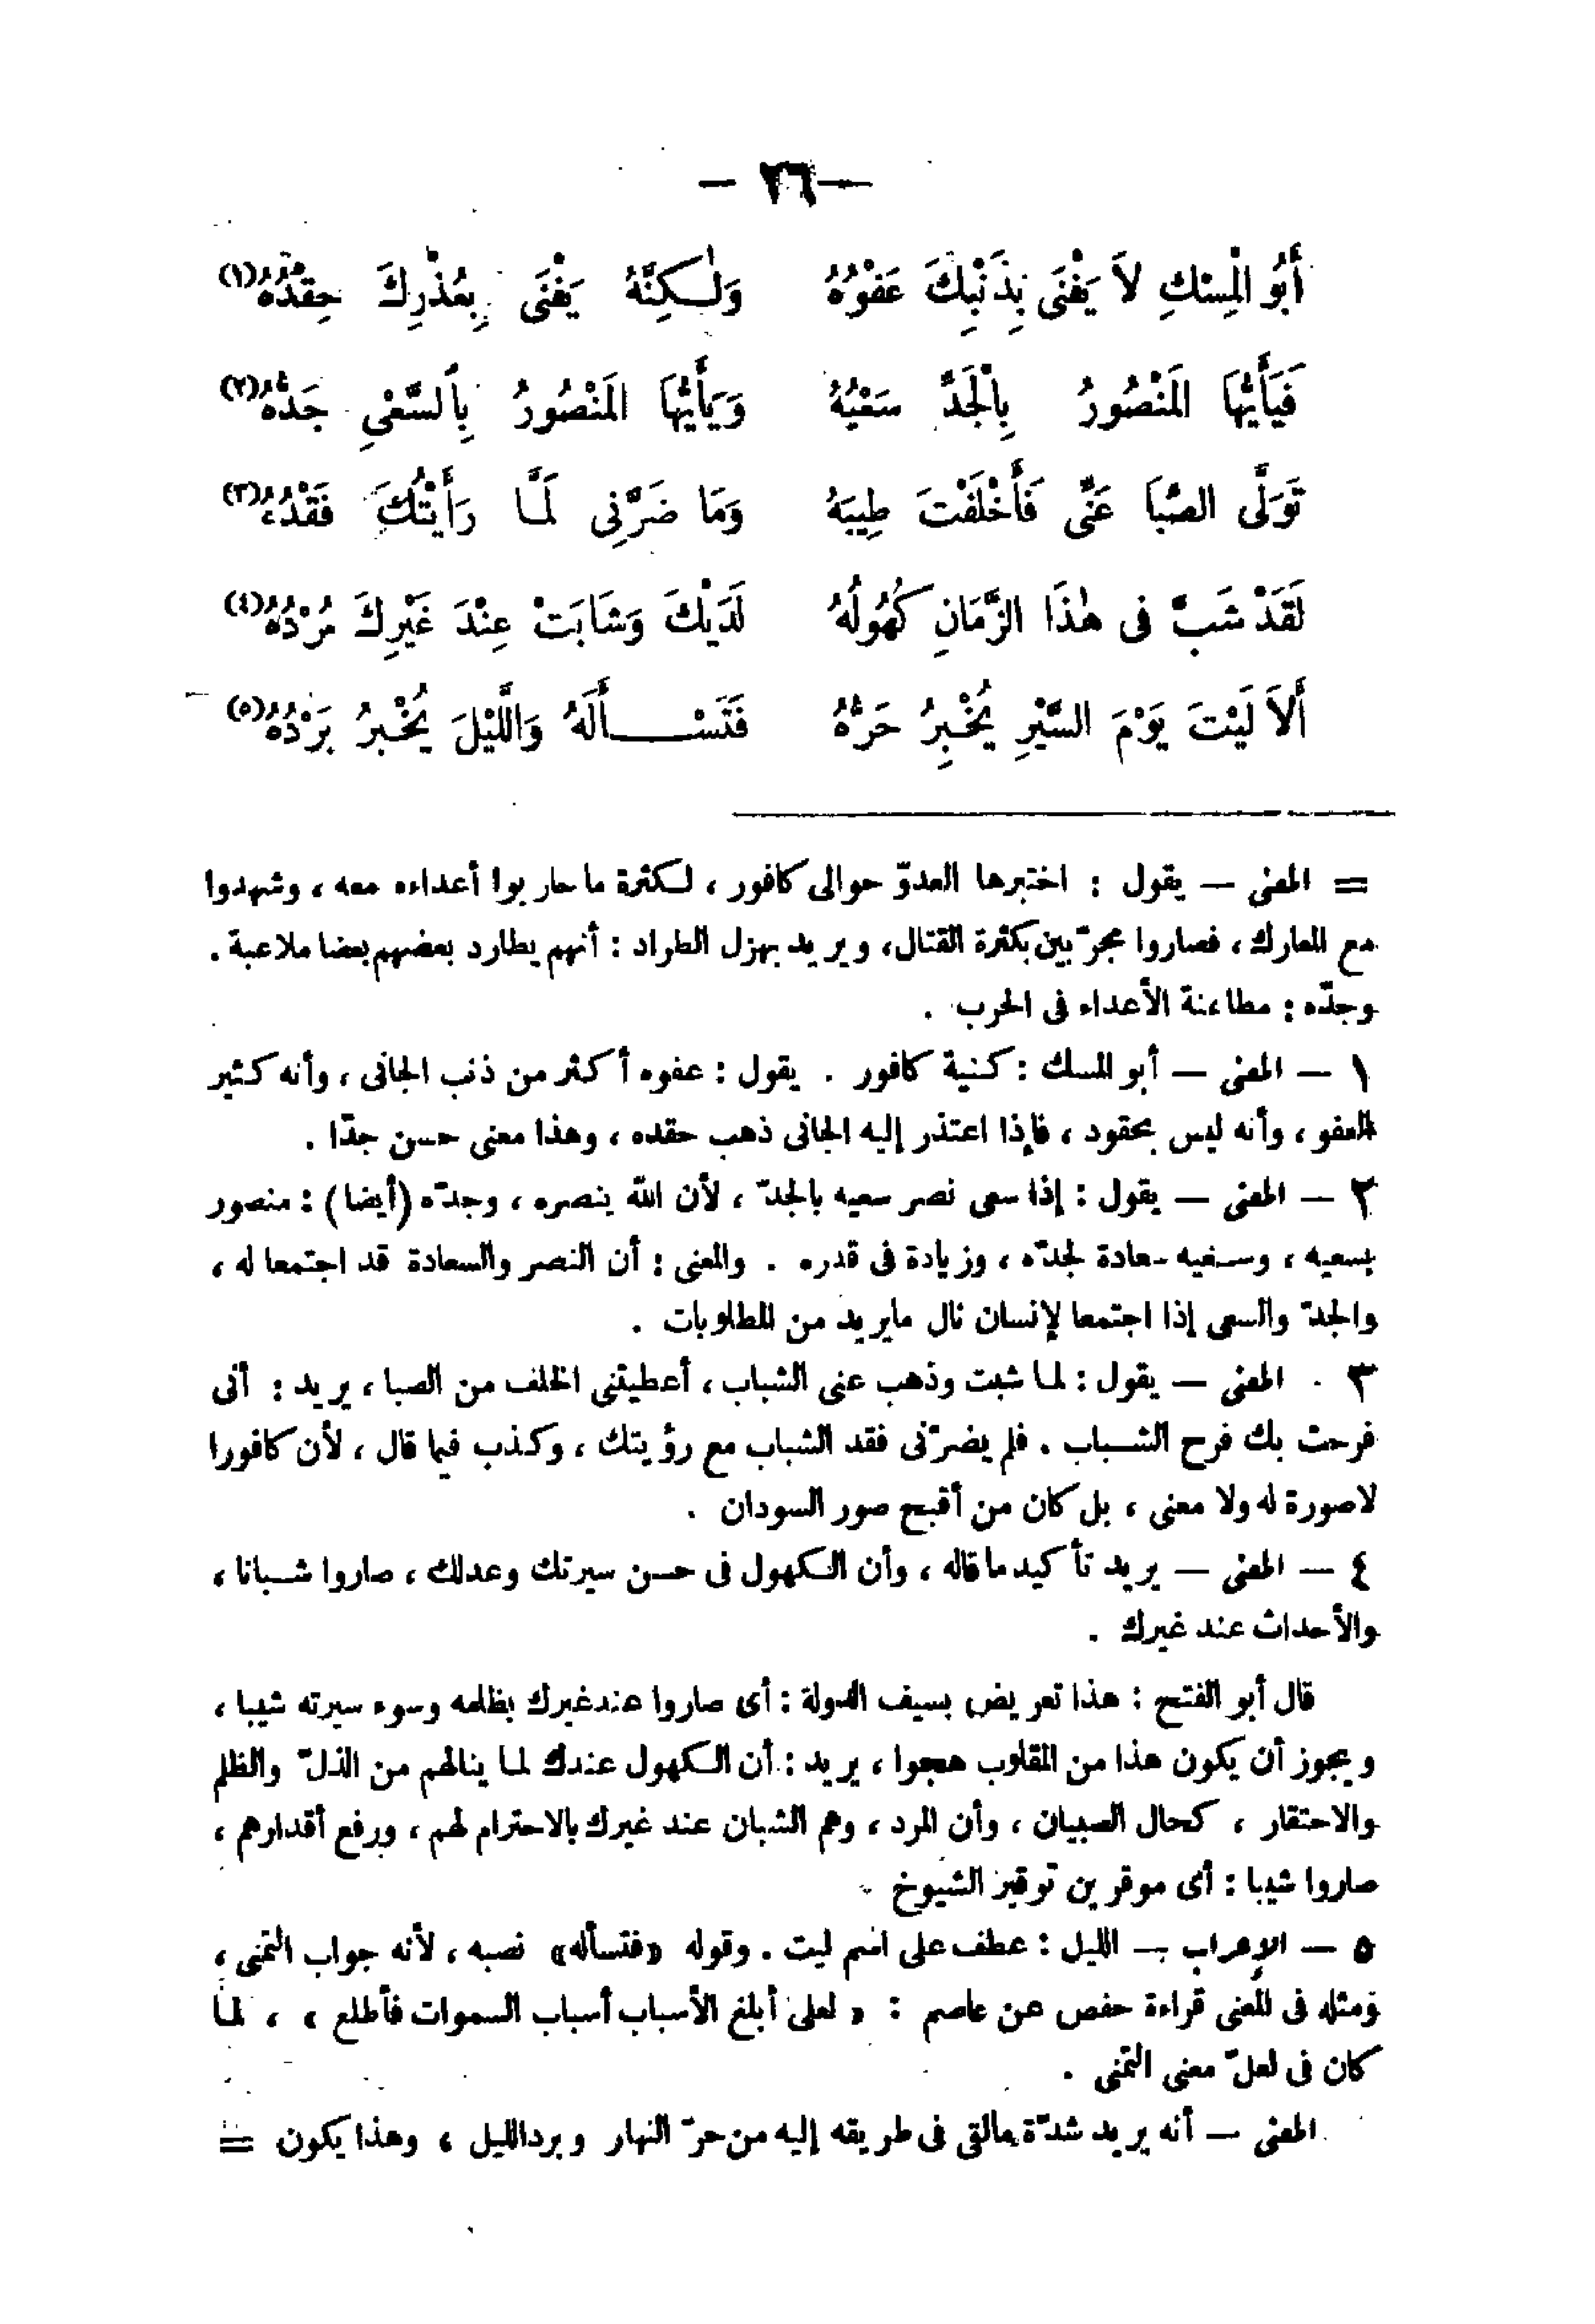 — ٢٦ —
أَبُو الْمِسْكِ لاَ يَفْنَى بِذَنْبِكَ عَفْوُهُ وَلٰكِنَّهُ يَفْنَى بِعُذْرِكَ حِقْدُهُ(١)
فَيَأَيُّهَا الْمَنْصُورُ بِالْجَدِّ سَعْيُهُ وَيَأَيُّهَا الْمَنْصُورُ بِالسَّعْىِ جَدُّهُ(٢)
تَوَلَّى الصِّبَا عَنِّى فَأَخْلَفْتَ طِيبَهُ وَمَا ضَرَّنِى لَمَّا رَأَيْتُكَ فَقْدُهُ(٣)
لَقَدْ شَبَّ فى هٰذَا الزَّمَانِ كُهُولُهُ لَدَيْكَ وَشَابَتْ عِنْدَ غَيْرِكَ مُرْدُهُ(٤)
أَلاَ لَيْتَ يَوْمَ السَّيْرِ يُخْبِرُ حَرُّهُ فَتَسْأَلَهُ وَاللَّيْلَ يُخْبِرُ بَرْدُهُ(٥)
= المعنى — يقول : اختبرها العدوّ حوالى كافور ، لكثرة ما حاربوا أعداءه معه ، وشهدوا
مع المعارك ، فصاروا مجرّبين بكثرة القتال، ويريد بهزل الطراد : أنهم يطارد بعضهم بعضا ملاعبة .
وجدّه : مطاعنة الأعداء فى الحرب .
١ — المعنى — أبو المسك : كنية كافور . يقول : عفوه أكثر من ذنب الجانى ، وأنه كثير
العفو ، وأنه ليس بحقود ، فإذا اعتذر إليه الجانى ذهب حقده ، وهذا معنى حسن جدّا .
٢ — المعنى — يقول : إذا سعى نصر سعيه بالجدّ ، لأن الله ينصره ، وجدّه (أيضا) : منصور
بسعيه ، وسعيه سعادة لجدّه ، وزيادة فى قدره . والمعنى : أن النصر والسعادة قد اجتمعا له ،
والجدّ والسعى إذا اجتمعا لإنسان نال مايريد من المطلوبات .
٣ . المعنى — يقول : لما شبت وذهب عنى الشباب ، أعطيتنى الخلف من الصبا ، يريد : أنى
فرحت بك فرح الشباب . فلم يضرّنى فقد الشباب مع رؤيتك ، وكذب فيما قال ، لأن كافورا
لاصورة له ولا معنى ، بل كان من أقبح صور السودان .
٤ — المعنى — يريد تأكيد ماقاله ، وأن الكهول فى حسن سيرتك وعدلك ، صاروا شبانا ،
والأحداث عند غيرك .
قال أبو الفتح : هذا تعريض بسيف الدولة : أى صاروا عندغيرك بظلمه وسوء سيرته شيبا ،
ويجوز أن يكون هذا من المقلوب هجوا ، يريد : أن الكهول عندك لما ينالهم من الذلّ والظلم
والاحتقار ، كحال الصبيان ، وأن المرد ، وهم الشبان عند غيرك بالاحترام لهم ، ورفع أقدارهم ،
صاروا شيبا : أى موقرين توقير الشيوخ .
٥ — الإعراب — الليل : عطف على اسم ليت . وقوله «فتسأله» نصبه ، لأنه جواب التمنى ،
ومثله فى المعنى قراءة حفص عن عاصم : « لعلى أبلغ الأسباب أسباب السموات فأطلع » ، لما
كان فى لعلّ معنى التمنى .
المعنى — أنه يريد شدّة مالقى فى طريقه إليه من حرّ النهار وبردالليل ، وهذا يكون =